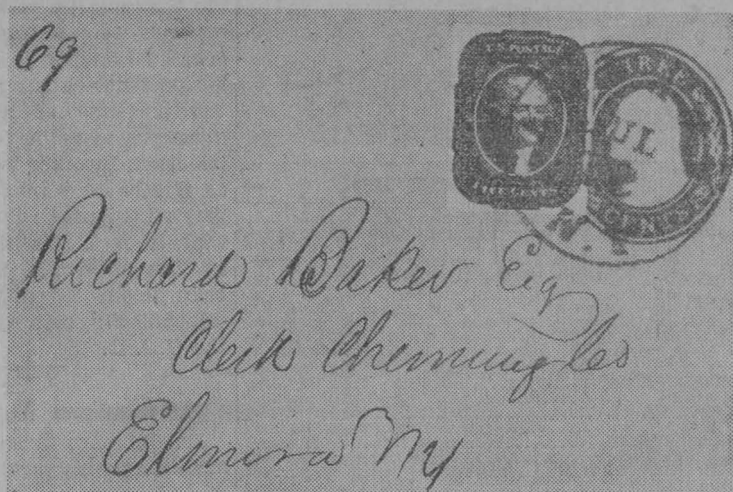 69
U.S. POSTAGE
FIVE CENTS
THREE
CENTS
JUL
N.Y
Richard Baker Esq
Clerk Chemung Co
Elmira NY